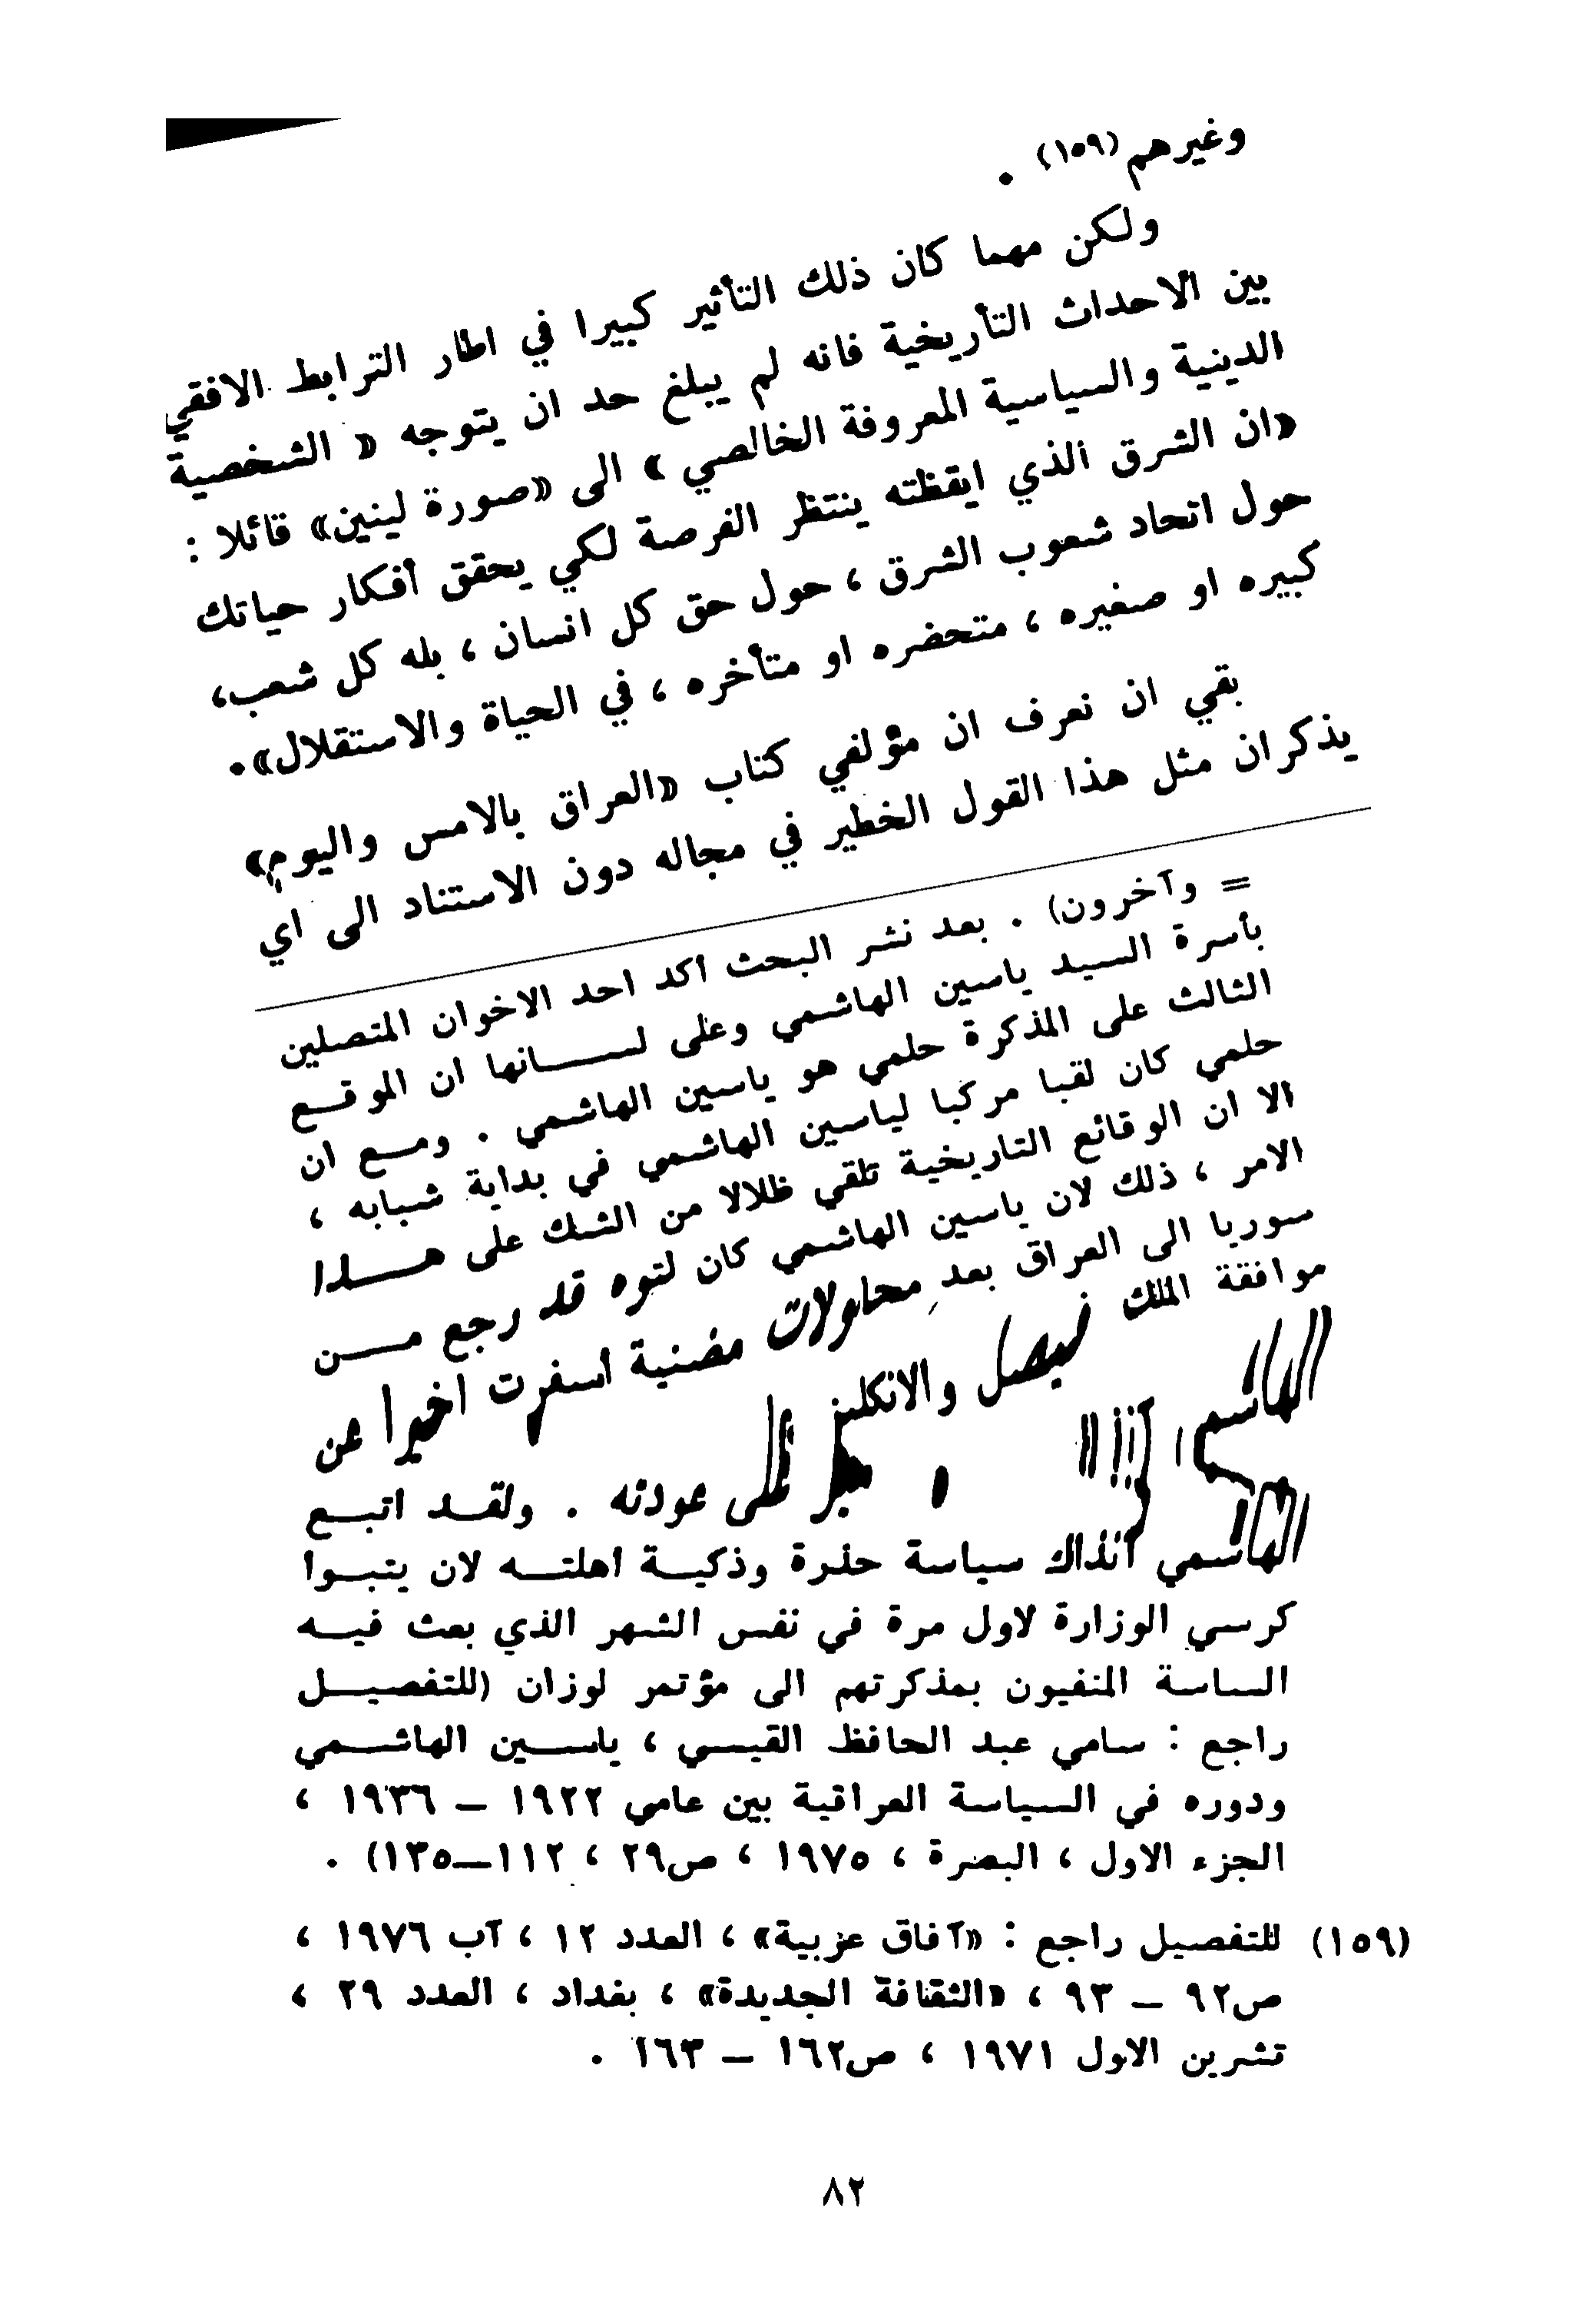 وغيرهم (١٥٩) .
ولكن مهما كان ذلك التأثير كبيرا في اطار الترابط الافقي
بين الاحداث التأريخية فانه لم يبلغ حد ان يتوجه « الشخصية
الدينية والسياسية المعروفة الخالصي » الى «صورة لينين» قائلا :
«ان الشرق الذي ايقظته ينتظر الفرصة لكي يحقق أفكار حياتك
حول اتحاد شعوب الشرق ، حول حق كل انسان ، بله كل شعب،
كبيره او صغيره ، متحضره او متأخره ، في الحياة والاستقلال».
بقي ان نعرف ان مؤلفي كتاب «العراق بالامس واليوم»
يذكران مثل هذا القول الخطير في مجاله دون الاستناد الى اي
= وآخرون) . بعد نشر البحث اكد احد الاخوان المتصلين
بأسرة السيد ياسين الهاشمي وعلى لســـانها ان الموقـع
الثالث على المذكرة حلمي هو ياسين الهاشمي . ومـع ان
حلمي كان لقبا مركبا لياسين الهاشمي في بداية شبابه ،
الا ان الوقائع التاريخية تلقي ظلالا من الشك على هــذا
الامر ، ذلك لان ياسين الهاشمي كان لتوه قد رجع مــن
سوريا الى العراق بعد محاولات مضنية اسفرت اخيرا عن
موافقة الملك فيصل والانكليز على عودته . ولقـد اتبـع
الهاشمي آنذاك سياسة حذرة وذكيـة اهلتـه لان يتبـوا
كرسي الوزارة لاول مرة في نفس الشهر الذي بعث فيـه
الساسة المنفيون بمذكرتهم الى مؤتمر لوزان (للتفصيـل
راجع : سامي عبد الحافظ القيسي ، ياسـين الهاشـمي
ودوره في السياسة العراقية بين عامي ١٩٢٢ – ١٩٣٦ ،
الجزء الاول ، البصرة ، ١٩٧٥ ، ص٢٩ ، ١١٢–١٣٥) .
(١٥٩) للتفصيل راجع : «آفاق عربية» ، العدد ١٢ ، آب ١٩٧٦ ،
ص٩٢ – ٩٣ ، «الثقافة الجديدة» ، بغداد ، العدد ٢٩ ،
تشرين الاول ١٩٧١ ، ص١٦٢ – ١٦٣ .
٨٢